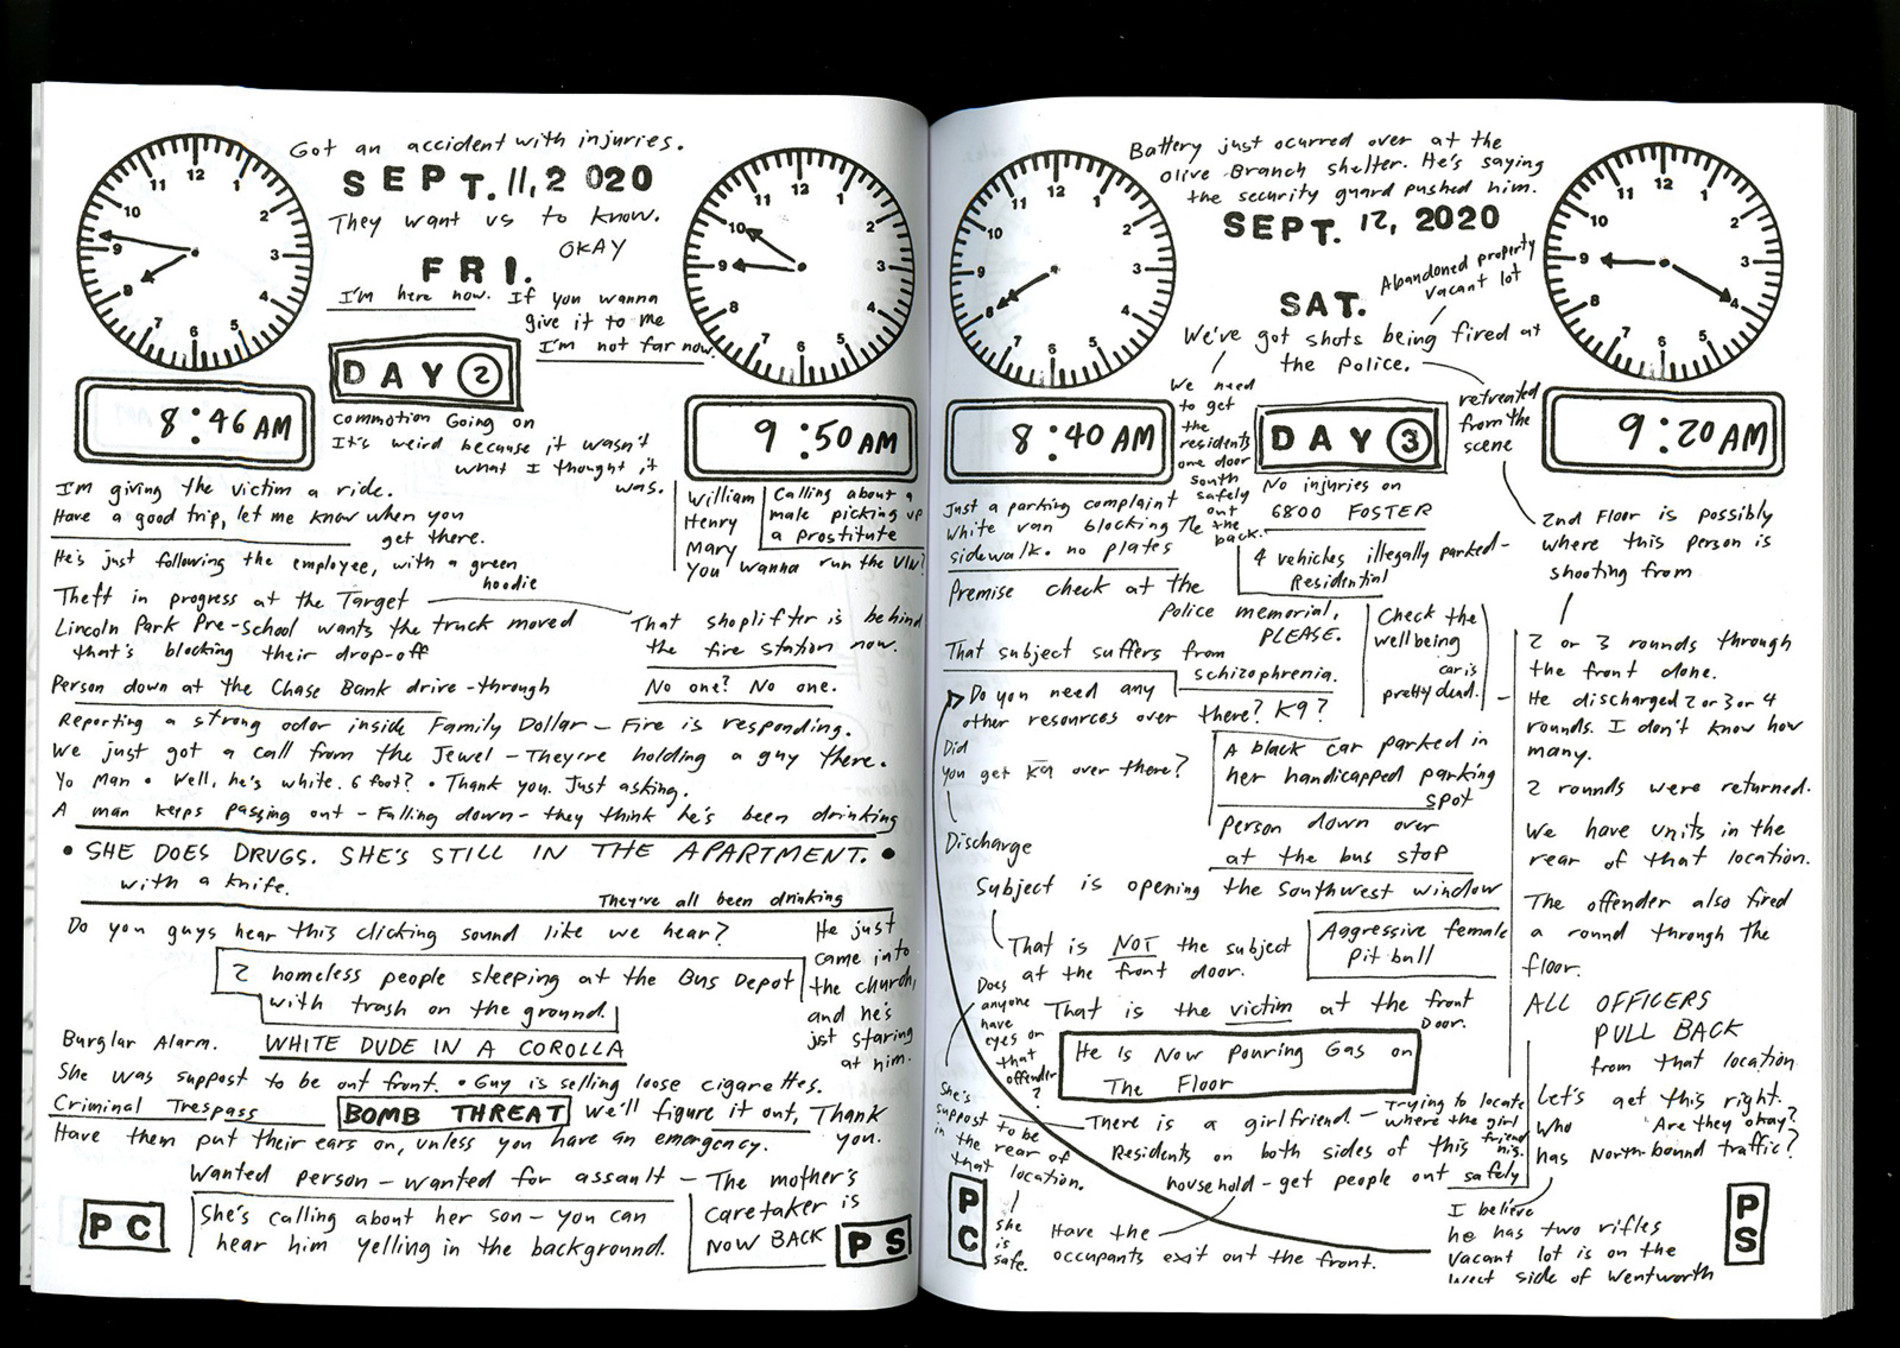 Got an accident with injuries.
SEPT. 11, 2020
They want us to know.
OKAY
FRI.
I'm here now. If you wanna
give it to me
I'm not far now.
DAY 2
12
1
2
3
4
5
6
7
8
9
10
11
8:46 AM
12
1
2
3
4
5
6
7
8
9
10
11
9:50 AM
commotion Going on
It's weird because it wasn't
what I thought it
was.
I'm giving the victim a ride.
Have a good trip, let me know when you
get there.
He's just following the employee, with a green
hoodie
William
Henry
Mary
You wanna run the VIN?
Calling about a
male picking up
a prostitute
Theft in progress at the Target
That shoplifter is behind
the fire station now.
Lincoln Park Pre-school wants the truck moved
that's blocking their drop-off
No one? No one.
Person down at the Chase Bank drive-through
Reporting a strong odor inside Family Dollar - Fire is responding.
We just got a call from the Jewel - They're holding a guy there.
Yo Man • Well, he's white. 6 foot? • Thank you. Just asking.
A man keeps passing out - Falling down - they think he's been drinking
• SHE DOES DRUGS. SHE'S STILL IN THE APARTMENT. •
with a knife.
They've all been drinking
Do you guys hear this clicking sound like we hear?
He just
came into
the church,
and he's
jst staring
at him.
2 homeless people sleeping at the Bus Depot
with trash on the ground.
Burglar Alarm.
WHITE DUDE IN A COROLLA
She was suppost to be out front. • Guy is selling loose cigarettes.
Criminal Trespass
BOMB THREAT
We'll figure it out, Thank
you.
Have them put their ears on, unless you have an emergency.
Wanted person - wanted for assault - The mother's
caretaker is
NOW BACK
She's calling about her son - you can
hear him yelling in the background.
PC
PS
Battery just ocurred over at the
Olive Branch shelter. He's saying
the security guard pushed him.
SEPT. 12, 2020
Abandoned property
vacant lot
SAT.
We've got shots being fired at
the Police.
DAY 3
12
1
2
3
4
5
6
7
8
9
10
11
8:40 AM
12
1
2
3
4
5
6
7
8
9
10
11
9:20 AM
We need
to get
the
residents
one door
south
safely
out
the
back.
retreated
from the
scene
No injuries on
6800 FOSTER
Just a parking complaint
White van blocking the
sidewalk. no plates
4 vehicles illegally parked -
Residential
Premise check at the
Police memorial,
PLEASE.
Check the
wellbeing
car is
pretty dead.
That subject suffers from
schizophrenia.
Do you need any
other resources over there? K9?
Did
you get K9 over there?
Discharge
A black car parked in
her handicapped parking
spot
Person down over
at the bus stop
Subject is opening the southwest window
That is NOT the subject
at the front door.
Aggressive female
pit bull
Does
anyone
have
eyes on
that
offender
?
That is the victim at the front
Door.
He Is Now Pouring Gas on
The Floor
She's
suppost to be
in the rear of
that location.
she
is
safe.
There is a girlfriend. - Trying to locate
where the girl
friend is.
Residents on both sides of this
household - get people out safely
Have the
occupants exit out the front.
2nd Floor is possibly
where this person is
shooting from
2 or 3 rounds through
the front done.
He discharged 2 or 3 or 4
rounds. I don't know how
many.
2 rounds were returned.
We have units in the
rear of that location.
The offender also fired
a round through the
floor.
ALL OFFICERS
PULL BACK
from that location
Let's get this right.
Who
Are they okay?
has North-bound traffic?
I believe
he has two rifles
Vacant lot is on the
West side of Wentworth
PC
PS